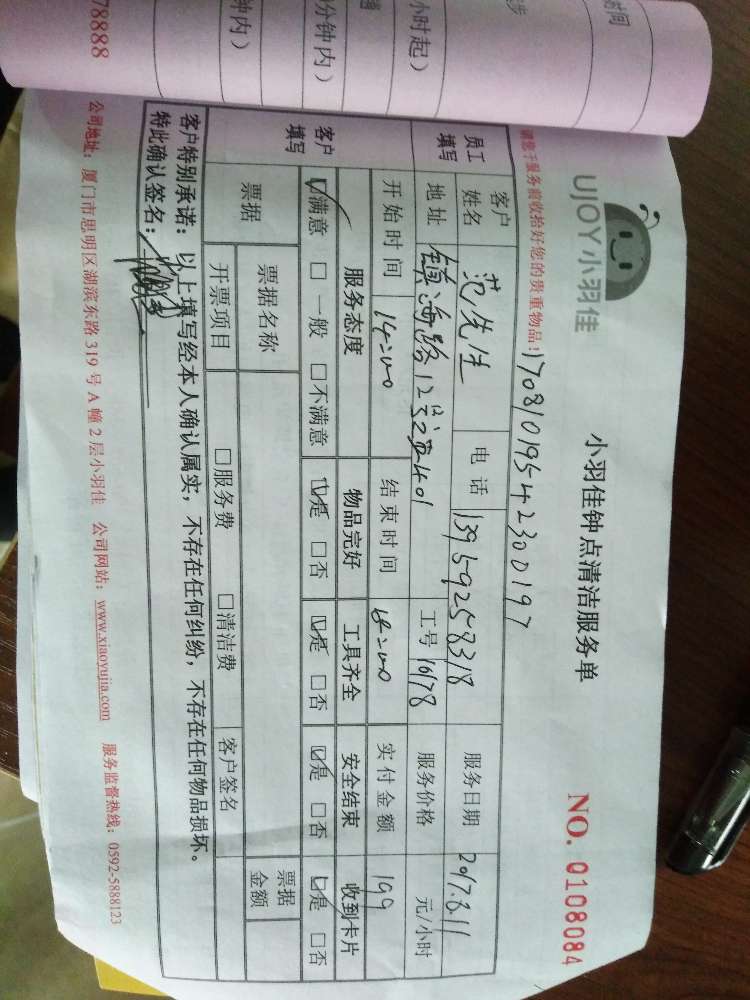 时间
小时起）
分钟内）
钟内）
78888
UJOY 小羽佳
小羽佳钟点清洁服务单
NO. 0108084
请您于服务前收拾好您的贵重物品！
17081019542300197
员工填写
客户姓名 范先生 电话 13959258318 服务日期 2017.8.11
地址 镇海路12号之五401 工号 10178 服务价格 元/小时
开始时间 14:00 结束时间 18:00 实付金额 199
客户填写
服务态度 物品完好 工具齐全 安全结束 收到卡片
☑满意 □一般 □不满意 ☑是 □否 ☑是 □否 ☑是 □否 ☑是 □否
票据 票据名称 票据金额
开票项目 □服务费 □清洁费 客户签名
客户特别承诺：以上填写经本人确认属实，不存在任何纠纷，不存在任何物品损坏。
特此确认签名：
公司地址：厦门市思明区湖滨东路319号A幢2层小羽佳 公司网站：www.xiaoyujia.com 服务监督热线：0592-5888123